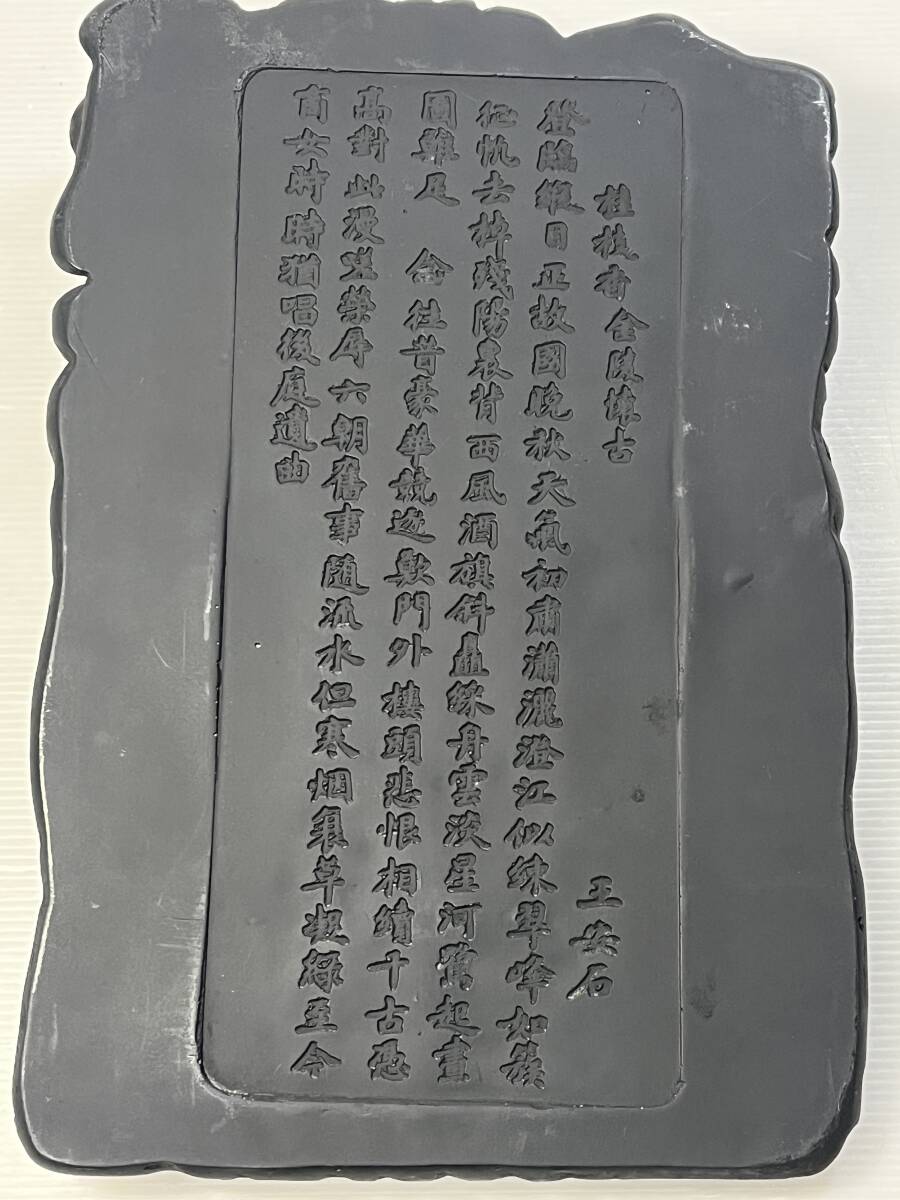 桂枝香金陵懷古
王安石
登臨縱目正故國晚秋天氣初肅瀟灑澄江似練翠峰如簇
征帆去棹殘陽裏背西風酒旗斜矗綵舟雲淡星河鷺起畫
圖難足　念往昔豪華競逐歎門外樓頭悲恨相續千古憑
高對此漫嗟榮辱六朝舊事随流水但寒烟衰草凝綠至今
商女時時猶唱後庭遺曲